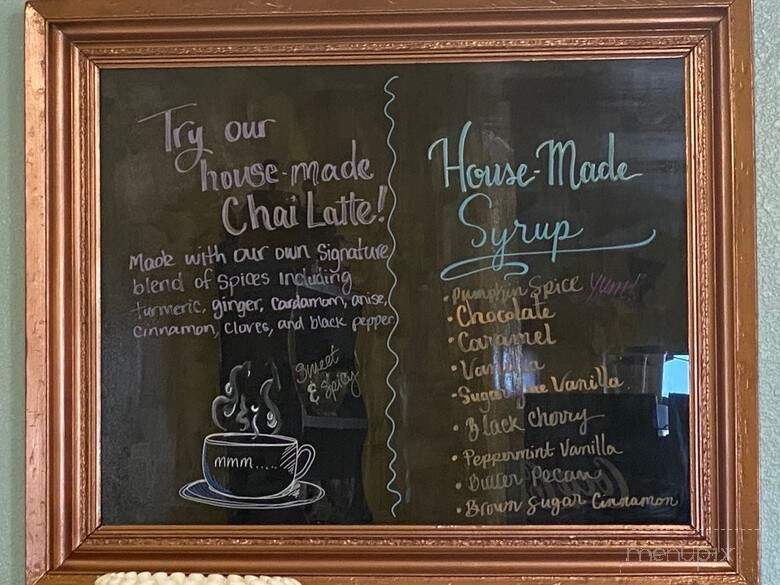 Try our
house-made
Chai Latte!
Made with our own Signature
blend of Spices Including
turmeric, ginger, cardamom, anise,
cinnamon, cloves, and black pepper
Sweet
& Spicy
mmm.....
House-Made
Syrup
• Pumpkin Spice Yum!
• Chocolate
• Caramel
• Vanilla
• Sugar free Vanilla
• Black Cherry
• Peppermint Vanilla
• Butter Pecan
• Brown Sugar Cinnamon
menupix